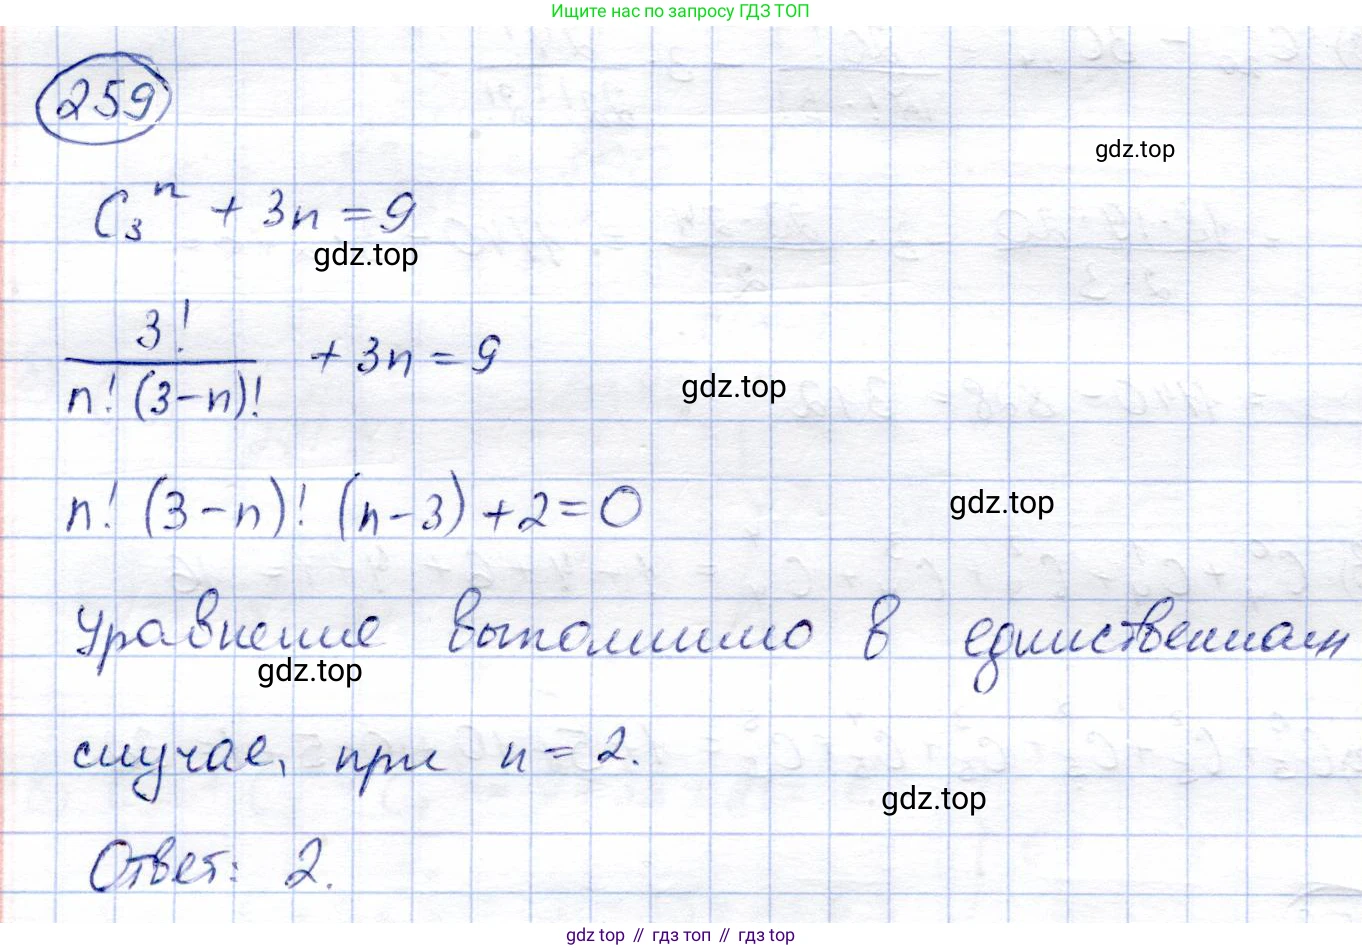 Ищите нас по запросу ГДЗ ТОП
259
gdz.top
C₃ⁿ + 3n = 9
gdz.top
3! / n! (3-n)! + 3n = 9
gdz.top
n! (3-n)! (n-3) + 2 = 0
gdz.top
Уравнение выполнимо в единственном
gdz.top
случае, при n = 2.
gdz.top
Ответ: 2.
gdz top // гдз топ // gdz top